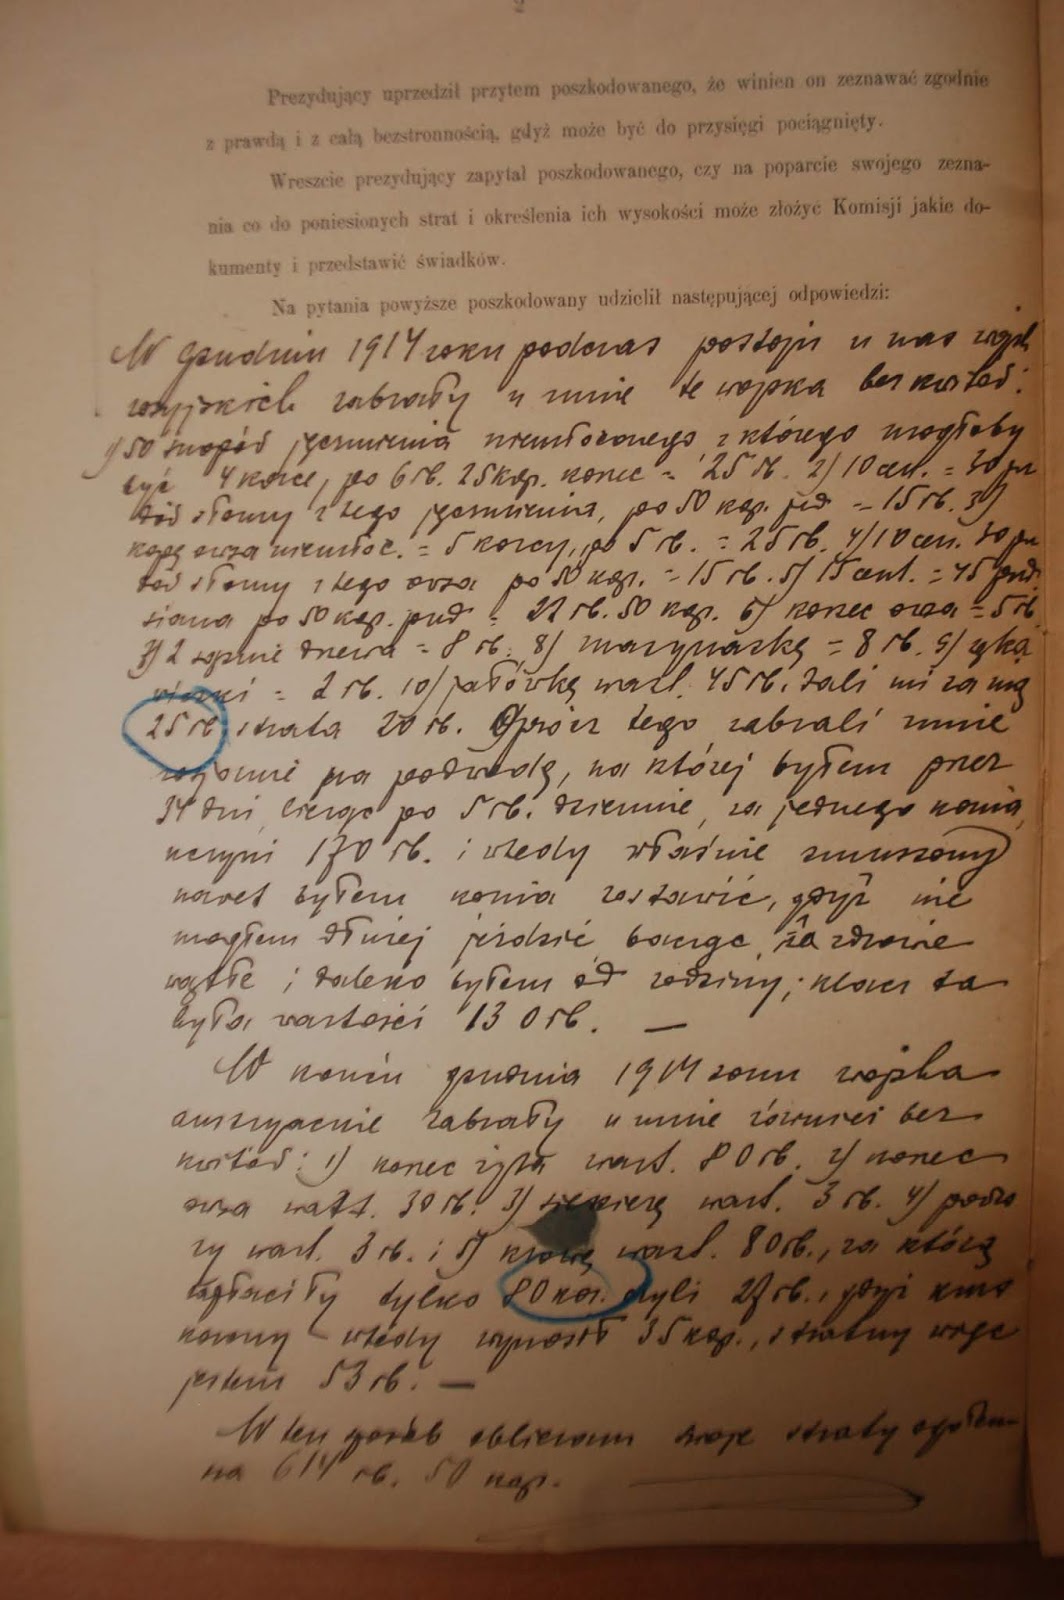 2
Prezydujący uprzedził przytem poszkodowanego, że winien on zeznawać zgodnie
z prawdą i z całą bezstronnością, gdyż może być do przysięgi pociągnięty.
Wreszcie prezydujący zapytał poszkodowanego, czy na poparcie swojego zezna-
nia co do poniesionych strat i określenia ich wysokości może złożyć Komisji jakie do-
kumenty i przedstawić świadków.
Na pytania powyższe poszkodowany udzielił następującej odpowiedzi:
W grudniu 1914 roku podczas postoju u nas wojsk
rosyjskich zabrały u mnie te wojska bez kwitów:
1) 50 snopów jęczmienia niemłóconego, z którego mogłoby
być 4 korce, po 6 rb. 25 kop. korzec = 25 rb. 2) 10 cen. = 30 pu
dów słomy z tego jęczmienia, po 50 kop. pud = 15 rb. 3)
kopę owsa niemłóc. = 5 korcy, po 5 rb. = 25 rb. 4) 10 cen. 30 pu
dów słomy z tego owsa po 50 kop. = 15 rb. 5) 15 cent. = 45 pud.
siana po 50 kop. pud = 22 rb. 50 kop. 6) korzec owsa = 5 rb.
7) 2 sążnie drzewa = 8 rb. 8) marynarkę = 8 rb. 9)
= 2 rb. 10) jałówkę wart. 45 rb. dali mi za nią
25 rb strata 20 rb. Oprócz tego zabrali mnie
rosjanie na podwodę, na której byłem przez
34 dni, licząc po 5 rb. dziennie, za jednego konia,
uczyni 170 rb. i wtedy właśnie zmuszony
nawet byłem konia zostawić, gdyż nie
mogłem dłużej jeździć, bacząc na zdrowie
wątłe i daleko byłem od rodziny; klacz ta
była wartości 130 rb. —
W końcu grudnia 1914 roku wojska
austryackie zabrały u mnie również bez
kwitów: 1) korzec żyta wart. 80 rb. 2) korzec
owsa wart. 30 rb. 3) siekierę wart. 3 rb. 4)
wart. 3 rb. i 5) krowę wart. 80 rb., za którą
zapłaciły tylko 80 kor. czyli 27 rb., gdyż kurs
korony wtedy wynosił 35 kop., stratny więc
jestem 53 rb. —
W ten sposób obliczam swoje straty ogółem
na 614 rb. 50 kop.